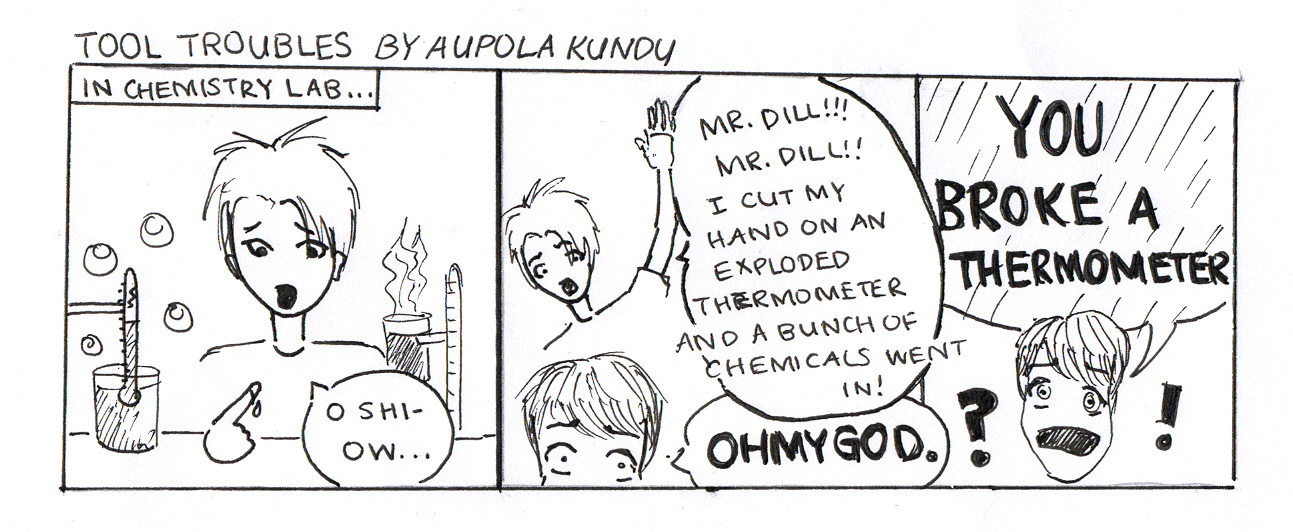 TOOL TROUBLES BY AUPOLA KUNDU
IN CHEMISTRY LAB...
O SHI-
OW...
MR. DILL!!!
MR. DILL!!
I CUT MY
HAND ON AN
EXPLODED
THERMOMETER
AND A BUNCH OF
CHEMICALS WENT
IN!
OHMYGOD.
YOU
BROKE A
THERMOMETER
? !